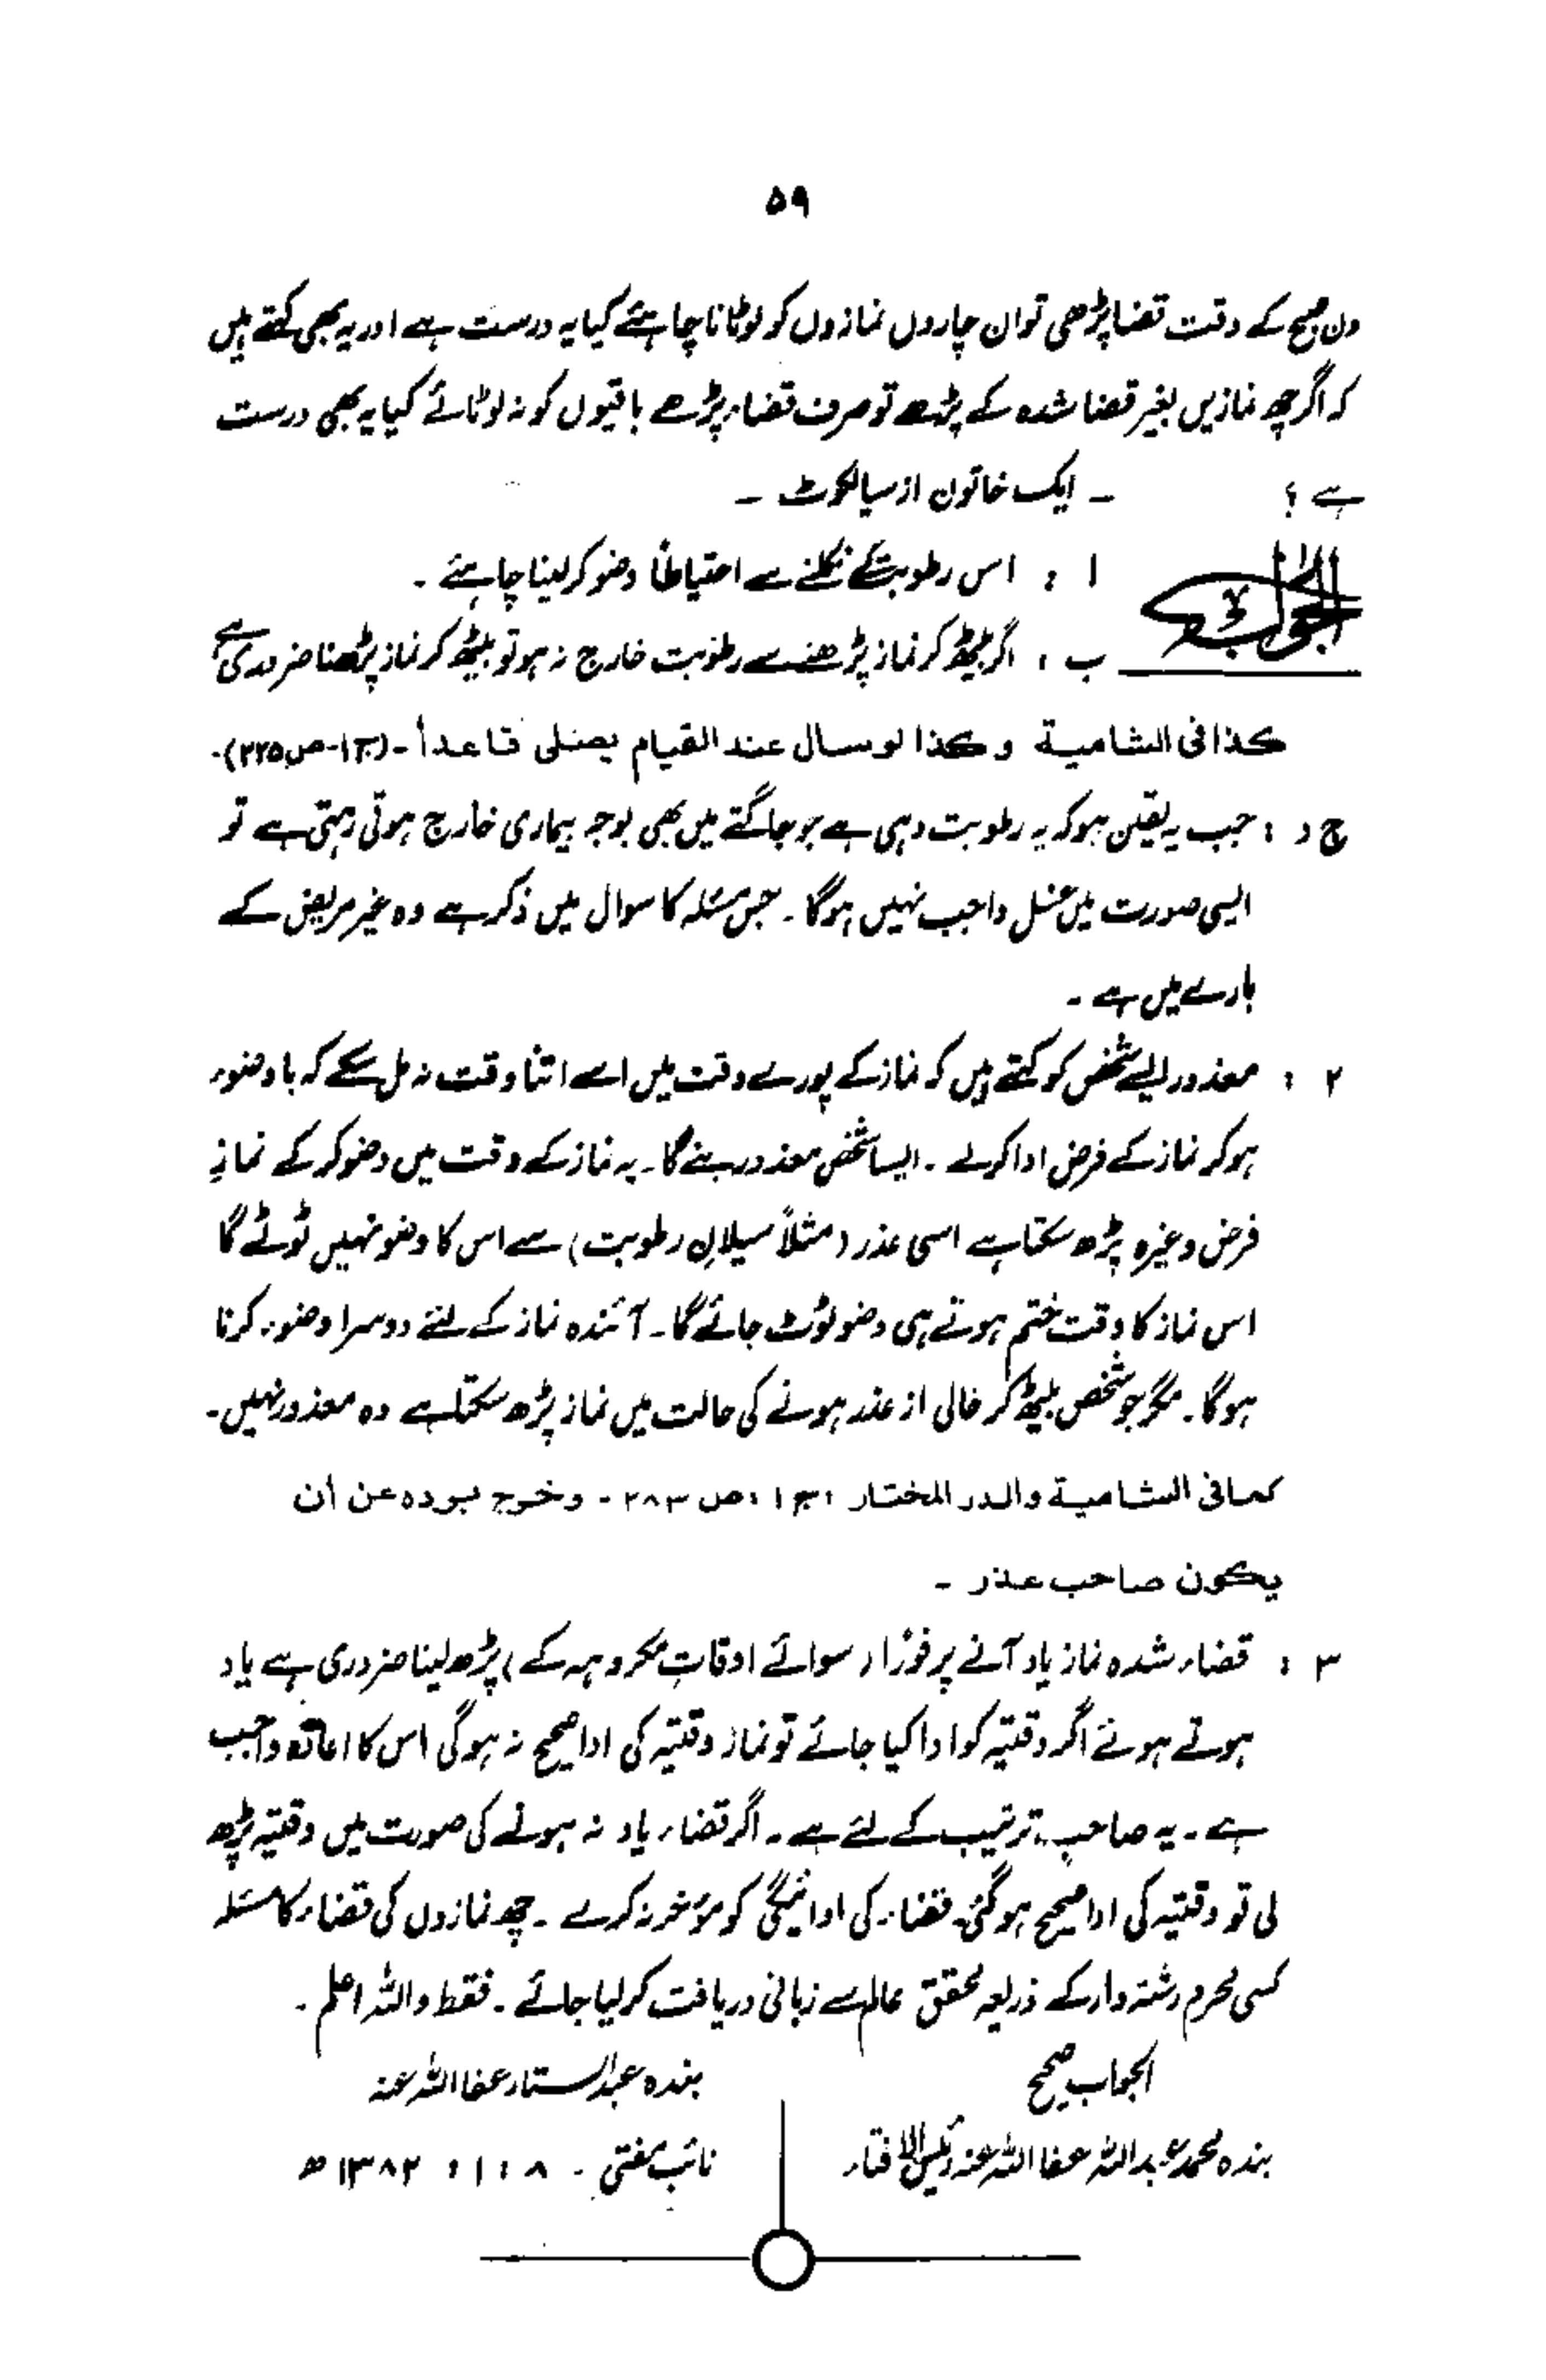 ۵۹
دن صبح کے وقت قضا پڑھی تو ان چاروں نمازوں کو لوٹانا چاہیئے کیا یہ درست ہے اور یہ بھی کہتے ہیں
کہ اگر چھ نمازیں بغیر قضا شدہ کے پڑھے تو صرف قضاء پڑھے باقیوں کو نہ لوٹائے کیا یہ بھی درست
ہے ؟ ۔ ایک خاتون از سیالکوٹ ۔
الجواب
ا : اس رطوبت کے نکلنے سے احتیاطاً وضو کر لینا چاہیئے ۔
ب : اگر بیٹھ کر نماز پڑھنے سے رطوبت خارج نہ ہو تو بیٹھ کر نماز پڑھنا ضروری ہے
کذا فی الشامیۃ و کذا لو سال عند القیام یصلی قاعداً ۔ (ج۱۔ص۲۲۵)۔
ج د : جب یہ یقین ہو کہ یہ رطوبت وہی ہے جو جاگتے میں بھی بوجہ بیماری خارج ہوتی رہتی ہے تو
ایسی صورت میں غسل واجب نہیں ہوگا ۔ جس مسئلہ کا سوال میں ذکر ہے وہ غیر مریض کے
بارے میں ہے ۔
۲ : معذور ایسے شخص کو کہتے ہیں کہ نماز کے پورے وقت میں اسے اتنا وقت نہ مل سکے کہ باوضوء
ہو کر نماز کے فرض ادا کر لے ۔ ایسا شخص معذور بنے گا ۔ یہ نماز کے وقت میں وضو کر کے نمازِ
فرض وغیرہ پڑھ سکتا ہے اسی عذر (مثلاً سیلانِ رطوبت) سے اس کا وضو نہیں ٹوٹے گا
اس نماز کا وقت ختم ہوتے ہی وضو ٹوٹ جائے گا ۔ آئندہ نماز کے لئے دوسرا وضوء کرنا
ہوگا ۔ مگر جو شخص بیٹھ کر خالی از عذر ہونے کی حالت میں نماز پڑھ سکتا ہے وہ معذور نہیں ۔
کما فی الشامیۃ والدر المختار ،ج۱ ،ص ۲۸۳ ۔ وخرج بردہ عن أن
یکون صاحب عذر ۔
۳ : قضاء شدہ نماز یاد آنے پر فوراً (سوائے اوقاتِ مکروہہ کے) پڑھ لینا ضروری ہے یاد
ہوتے ہوئے اگر وقتیہ کو ادا کیا جائے تو نماز وقتیہ کی ادا صحیح نہ ہوگی اس کا اعادہ واجب
ہے ۔ یہ صاحبِ ترتیب کے لئے ہے ۔ اگر قضاء یاد نہ ہونے کی صورت میں وقتیہ پڑھ
لی تو وقتیہ کی ادا صحیح ہو گئی قضاء کی ادائیگی کو مؤخر نہ کرے ۔ چھ نمازوں کی قضاء کا مسئلہ
کسی محرم رشتہ دار کے ذریعہ محقق عالم سے زبانی دریافت کر لیا جائے ۔ فقط واللہ اعلم ۔
الجواب صحیح
بندہ محمد عبداللہ عفا اللہ عنہ رئیس الافتاء
بندہ عبدالستار عفا اللہ عنہ
نائب مفتی ۔ ۸ ؍ ۱ ؍ ۱۳۸۲ ھ